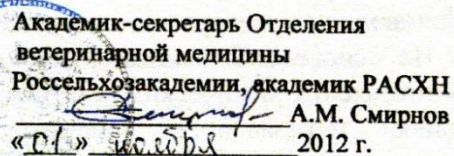 Академик-секретарь Отделения
ветеринарной медицины
Россельхозакадемии, академик РАСХН
А.М. Смирнов
«01» ноября 2012 г.